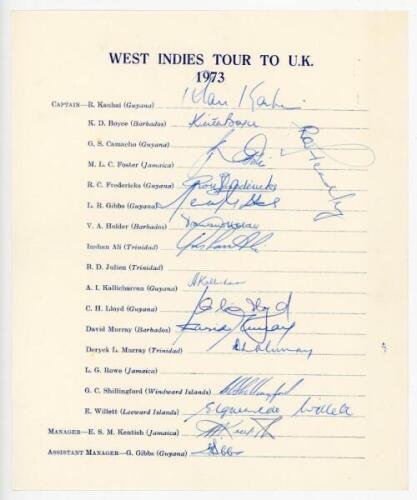 WEST INDIES TOUR TO U.K.
1973
CAPTAIN—R. Kanhai (Guyana)
K. D. Boyce (Barbados) Keith Boyce
G. S. Camacho (Guyana)
M. L. C. Foster (Jamaica)
R. C. Fredericks (Guyana) Roy Fredericks
L. R. Gibbs (Guyana)
V. A. Holder (Barbados)
Inshan Ali (Trinidad) Inshan Ali
B. D. Julien (Trinidad)
A. I. Kallicharran (Guyana) A Kallicharran
C. H. Lloyd (Guyana) Clive Lloyd
David Murray (Barbados) David Murray
Deryck L. Murray (Trinidad) D L Murray
L. G. Rowe (Jamaica)
G. C. Shillingford (Windward Islands) G C Shillingford
E. Willett (Leeward Islands) Elquemedo Willett
MANAGER—E. S. M. Kentish (Jamaica)
ASSISTANT MANAGER—G. Gibbs (Guyana) Gibbs